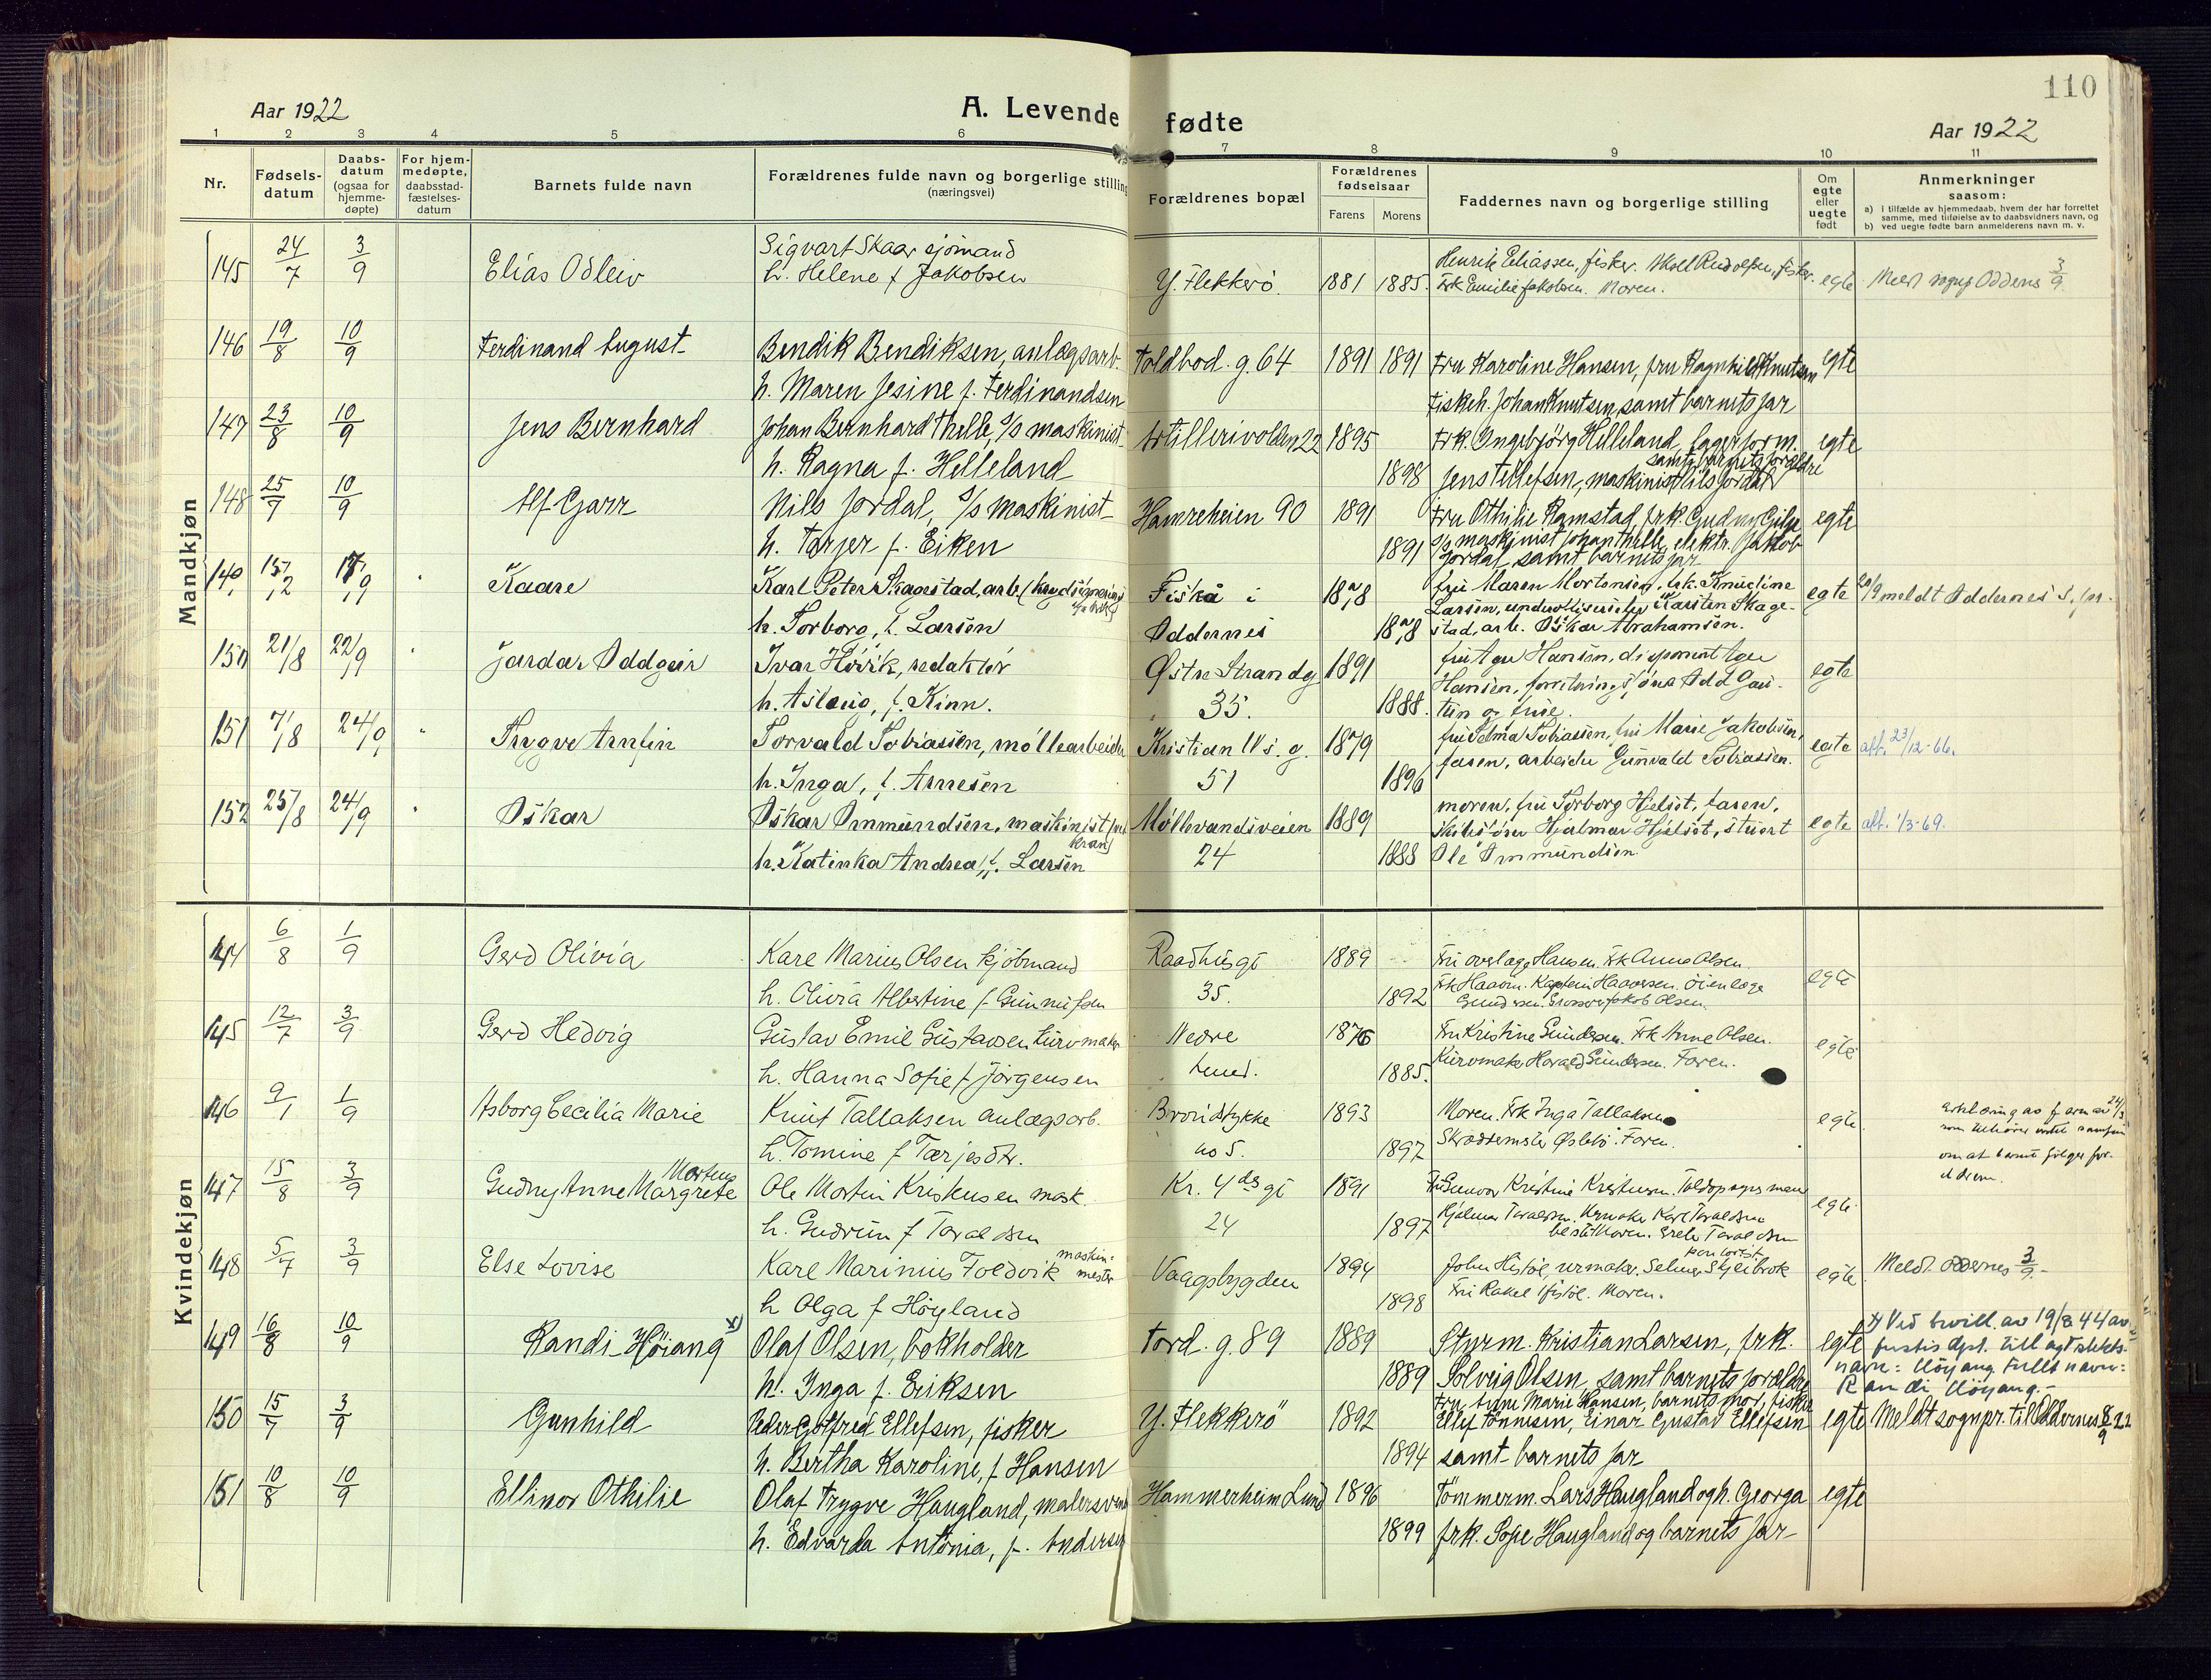 110
Aar 1922
A. Levende fødte
Aar 1922
1 2 3 4 5 6 7 8 9 10 11
Nr.
Fødsels-
datum
Daabs-
datum
(ogsaa for
hjemme-
døpte)
For hjem-
medøpte,
daabsstad-
fæstelses-
datum
Barnets fulde navn
Forældrenes fulde navn og borgerlige stilling
(næringsvei)
Forældrenes bopæl
Forældrenes
fødselsaar
Farens Morens
Faddernes navn og borgerlige stilling
Om
egte
eller
uegte
født
Anmerkninger
saasom:
a) i tilfælde av hjemmedaab, hvem der har forrettet
samme, med tilføielse av to daabsvidners navn, og
b) ved uegte fødte barn anmelderens navn m. v.
Mandkjøn
145 24/7 3/9 Elias Odleiv Sigvart Skaar sjömand Y. Flekkerö. 1881 1885. Henrik Eliassen, fisker. Rudolfsen, fisker. egte Meldt Oddernes 3/9.
h. Helene f Jakobsen Frk Emilie Jakobsen. Moren.
146 19/8 10/9 Ferdinand August Bendik Bendiksen, anlægsarb. Toldbod. g. 64 1891 1891 Fru Karoline Hansen, fru Ragnhild Knutsen egte
h. Maren Jesine f. Ferdinandsen Fiskeh. Johan Knutsen samt barnets far
147 23/8 10/9 Jens Bernhard Johan Bernhard Thelle, s/s maskinist Artillerivolden 22 1895 Frk. Ingebjörg Helleland, lagerform. egte
h. Ragna f. Helleland 1898 Jens Tellefsen, maskinist Nils Jordal samt barnets forældre
148 25/7 10/9 Alf Gjarr Nils Jordal, s/s maskinist Hamreheien 90 1891 Fru Othilie Ramstad, frk. Gudny egte
h. Tarjer f. Eiken 1891 s/s maskinist Johan Thelle, elektr. Jakob
Jordal samt barnets far
149 15/2 17/9 " Kaare Karl Peter Skagestad, arb. Fiskå i 1898 fru Maren Mortensen, frk. Knudine egte 20/9 meldt Oddernes s.pr.
h. Torborg, f. Larsen Oddernes 1898 Larsen, underoffiserselev Karsten Skage-
stad, arb. Oskar Abrahamsen.
150 21/8 22/9 " Jardar Oddgeir Ivar Hövik, redaktör Østre Strandg 1891 fru Hansen, disponent egte
h. Aslaug, f. Kinn. 35. 1888. Hansen, Odd
og frue.
151 7/8 24/9 " Trygve Arnfin Torvald Tobiassen, möllearbeider Kristian IVs. g. 1879 fru Selma Tobiassen, fru Marie Jakobsen, egte att. 23/12-66.
h. Inga, f. Arnesen 51 1896 faren, arbeider Gunvald Tobiassen.
152 25/8 24/9 " Oskar Oskar Ommundsen, maskinist Möllevandsveien 1889 moren, fru Torborg Hjelset, faren, egte att. 1/3-69.
h. Katinka Andrea, f. Larsen 24 1888 Hjalmar Hjelset, stuert
Ole Ommundsen
Kvindekjøn
144 6/8 1/9 Gerd Olivia Kare Marius Olsen kjöbmand Raadhusgt 1889 Fru overlæge Hansen. Frk Anna Olsen. egte
h. Olivia Albertine f Gunnufsen 35. 1892 Kaptein Haaversen. öienlæge
Gundersen. Grosserer Jakob Olsen.
145 12/7 3/9 Gerd Hedvig Gustav Emil Gustavsen kurvmaker Nedre 1876 Fru Kristine Gundersen. Frk Anne Olsen. egte
h. Hanna Sofie f Jörgensen Lund. 1885. Kurvmaker Harald Gundersen. Faren.
146 9/1 1/9 Asborg Cecilia Marie Knut Tallaksen anlægsarb. Brovidtykke 1893 Moren. Frk Inga Tallaksen egte
h. Tomine f Tarjesdtr. no 5. 1897 Skrædderm. Faren.
147 15/8 3/9 Gudny Anne Margrete Mortine Ole Martin Kristensen mask. Kr. 4des gt 1891 Kristine Kristensen. Toldopsynsman egte
h. Gudrun f Taraldsen 24 1897 Hjalmar Taraldsen. Karl Taraldsen
148 5/7 3/9 Else Lovise Karl Marinius Foldvik maskin-mester Vaagsbygden 1894 John Histöl, urmaker. Selmer Skjeibrok egte Meldt Oddernes 3/9.
h Olga f Höyland 1898 Fru Rakel Histöl. Moren.
149 16/8 10/9 Randi Höiang x) Olaf Olsen, bokholder Tord. g. 89 1889 Styrm. Kristian Larsen, frk. egte x) Ved bevill. av 19/8 44 av
h. Inga f. Eriksen 1889 Solveig Olsen samt barnets forældre justis dpt. till. agt slekts-
navn: Höyang Fullt navn:
Randi Höyang.-
150 15/7 3/9 Gunhild Peder Gotfred Ellefsen, fisker Y. Flekkerö 1892 Fru Anne Marie Hansen, barnets mor, fisker egte Meldt sognpr. til Oddernes 8/9 22
h. Bertha Karoline, f Hansen 1894 Ellef Tönnesen, Einar Gustav Ellefsen
samt barnets far
151 10/8 10/9 Ellinor Othilie Olaf Trygve Haugland, malersvend Hammerheim Lund 1896 Tömmerm. Lars Haugland og h. Georga egte
h. Edvarda Antonia, f. Andersen 1899 frk. Sofie Haugland og barnets far